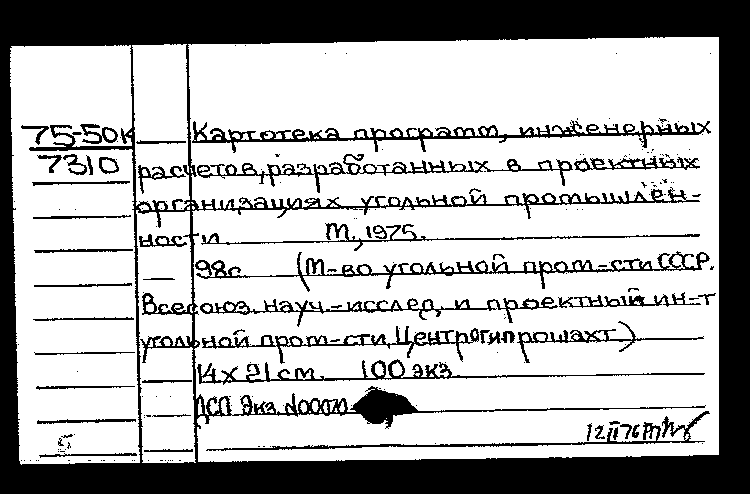 75-50к Картотека программ, инженерных
7310 расчетов, разработанных в проектных
организациях угольной промышлен-
ности. М., 1975.
98с. (М-во угольной пром-сти СССР.
Всесоюз. науч.-исслед. и проектный ин-т
угольной пром-сти, Центрогипрошахт.)
14 х 21 см. 100 экз.
ДСП Экз. N00070
5 12 II 76